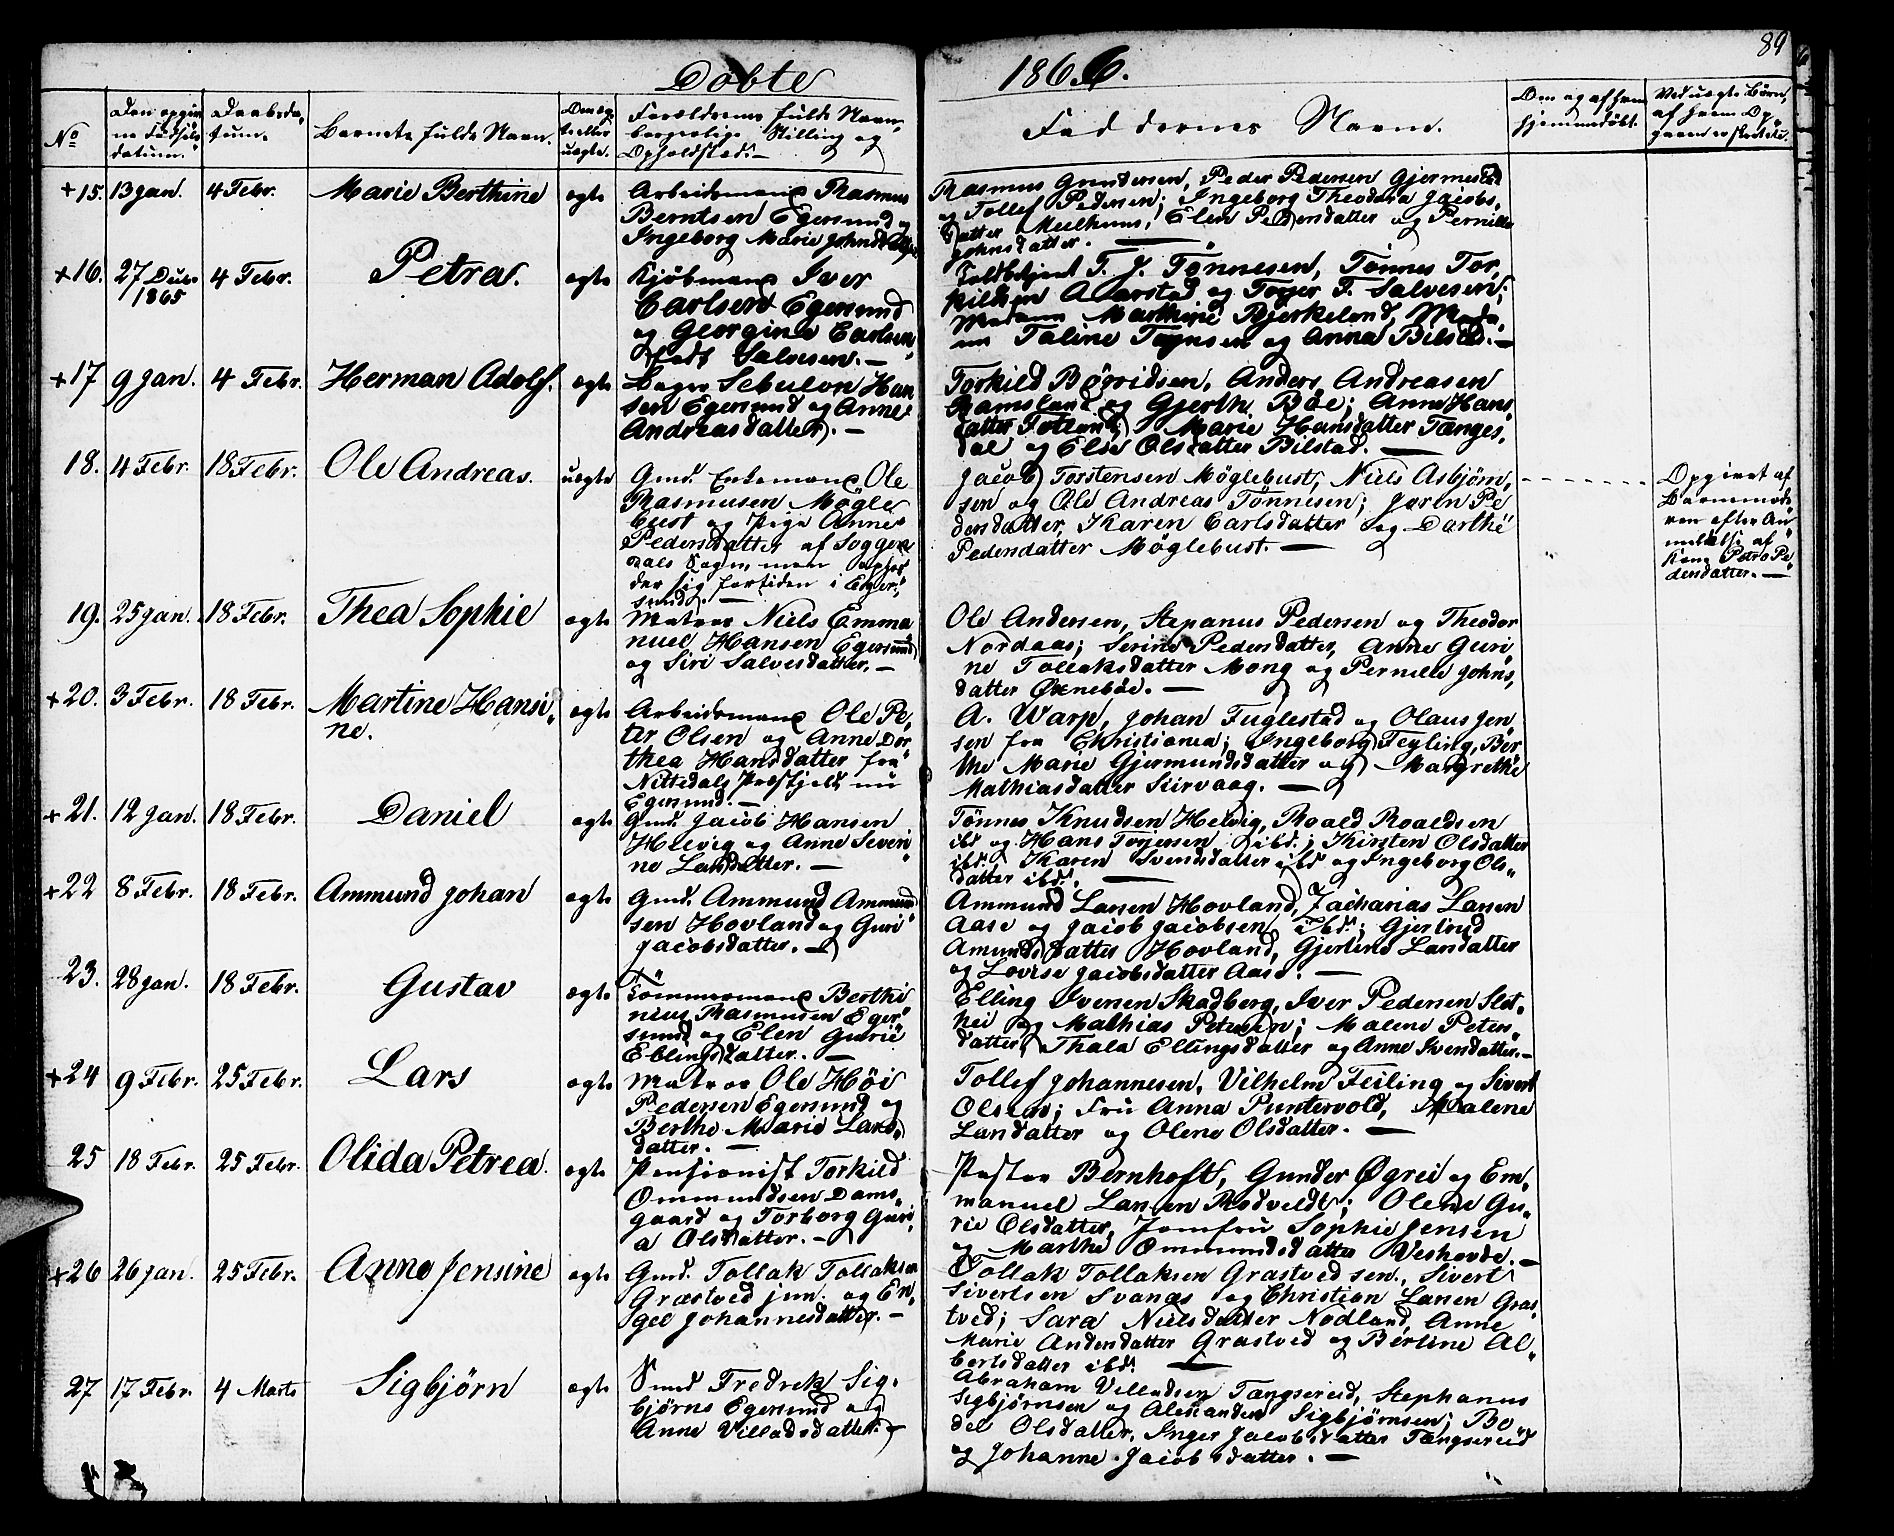 89
Døbte 1866.
No
Den opgivne Fødselsdatum.
Daabsdatum.
Barnets fulde Navn.
Om ægte eller uægte.
Forældrenes fulde Navn, borgerlige Stilling og Opholdsted.
Faddernes Navn.
Om og af hvem hjemmedøbt.
Ved uægte Børn, af hvem Opgaven er skeet etc.
+15. 13 Jan. 4 Febr. Marie Berthine ægte
Arbeidsmand Rasmus
Berntsen Egersund og
Ingeborg Marie Johnsdatter
Rasmus Gundersen, Peder Pedersen Gjermestad
og Tollef Pedersen; Ingeborg Theodora Jacobs,
datter Meelhuus, Elen Pedersdatter og Pernille
Johnsdatter. —
+16. 27 Decbr 1865 4 Febr. Petra. ægte
Kjøbmand Iver
Carlsen Egersund
og Georgine Carlsen
født Salvesen. —
Toldbetjent T. J. Tönnesen, Tönnes Tor,
kildsen Aarstad og Torjer T. Salvesen;
Madam Marthine Bjerkeland, Mada,
m Taline Tognsen og Anna Bilstad. —
+17 9 Jan. 4 Febr. Herman Adolf. ægte
Bager Sebulon Han
sen Egersund og Anne
Andreasdatter. —
Torkild Børridsen, Anders Andreasen
Ramsland og Gjerth Böe; Anne Hans,
datter Fotland, Marie Hansdatter Tænges,
dal og Else Olsdatter Bilstad. —
18. 4 Febr. 18 Febr. Ole Andreas. uægte
Gmd. Enkemand Ole
Rasmusen Mögle
bust og Pige Anne
Pedersdatter af Sogge
dals Sogn, men ophol
der sig fortiden i Eger,
sund. —
Jacob Torstensen Möglebust, Niels Asbjørn,
sen og Ole Andreas Tönnesen; Joren Pe
dersdatter, Karen Carlsdatter og Darthe
Pedersdatter Möglebust. —
Opgivet af
Barnemode
ren efter An
meldelse af
Kone Petra Pe
dersdatter. —
19. 25 Jan. 18 Febr. Thea Sophie ægte
Matros Niels Emma
nuel Hansen Egersund
og Siri Salvesdatter. —
Ole Andersen, Stepanus Pedersen og Theodor
Nordaas; Serine Pedersdatter, Anne Guri
ne Tollaksdatter Mong og Pernille Johns,
datter Øxneböe. —
+20. 3 Febr. 18 Febr. Martine Hansi,
ne. ægte
Arbeidsmand Ole Pe,
ter Olsen og Anne Dor
thea Hansdatter fra
Nittedals Præstgjeld nu
Egersund. —
A. Warp, Johan Fuglestad og Olaus Jen
sen fra Christiania; Ingeborg Feyling, Ber
the Marie Gjermundsdatter og Margrethe
Mathiasdatter Siirvaag. —
+21. 12 Jan. 18 Febr. Daniel ægte
Gmd. Jacob Hansen
Helvig og Anne Severi
ne Larsdatter. —
Tönnes Knudsen Helvig, Roald Roaldsen
ibd og Hans Torjersen ibd.; Kirsten Olsdatter
ibd., Karen Svendsdatter ibd og Ingeborg Ols,
datter ibd. —
+22 8 Febr. 18 Febr. Ammund Johan ægte
Gmd. Ammund Ammund
sen Hovland og Guri
Jacobsdatter. —
Ammund Larsen Hovland, Zacharias Larsen
Aase og Jacob Jacobsen ibd.; Gjertrud
Amundsdatter Hovland, Gjerline Larsdatter
og Lovise Jacobsdatter Aase. —
23. 28 Jan. 18 Febr. Gustav ægte
Tömmermand Berthi
nius Rasmusen Eger
sund og Elen Gurie
Ellingsdatter. —
Elling Iversen Skadberg, Iver Pedersen Slet
hei og Mathias Petersen; Malene Peters,
datter, Thala Ellingsdatter og Anne Iversdatter. —
+24 9 Febr. 25 Febr. Lars ægte
Matros Ole Höi
Pedersen Egersund og
Berthe Marie Lars,
datter. —
Tollef Johannesen, Vilhelm Feiling og Sivert
Olsen; Fru Anna Puntervold, Malene
Larsdatter og Olene Olsdatter. —
25 18 Febr. 25 Febr. Olida Petrea. ægte
Pensionist Torkild
Ommundsen Dams,
gaard og Torborg Guri,
a Olsdatter. —
Pastor Bernhoft, Gunder Øgrei og Em,
manuel Larsen Rodveldt; Olene Gu,
rie Olsdatter, Jomfru Sophie Jensen
og Marthe Ommundsdatter Veshovde. —
+26 26 Jan. 25 Febr. Anne Jensine ægte
Gmd. Tollak Tollaksen
Græstved jun. og En,
gel Johannesdatter. —
Tollak Tollaksen Græstved sen., Sivert
Sivertsen Svanæs og Christian Larsen Græs,
tved; Sara Nielsdatter Nodland, Anne
Marie Andersdatter Græstved og Berline Al,
bertsdatter ibd. —
27 17 Febr. 4 Marts Sigbjörn ægte
Smed Fredrek Sig,
björns Egersund og
Anne Villadsdatter. —
Abraham Villadsen Tængsereid, Stephanus
Sigbjörnsen og Alexander Sigbjörnsen; Bo
del Olsdatter, Inger Jacobsdatter Tængsereid
og Johanne Jacobsdatter. —